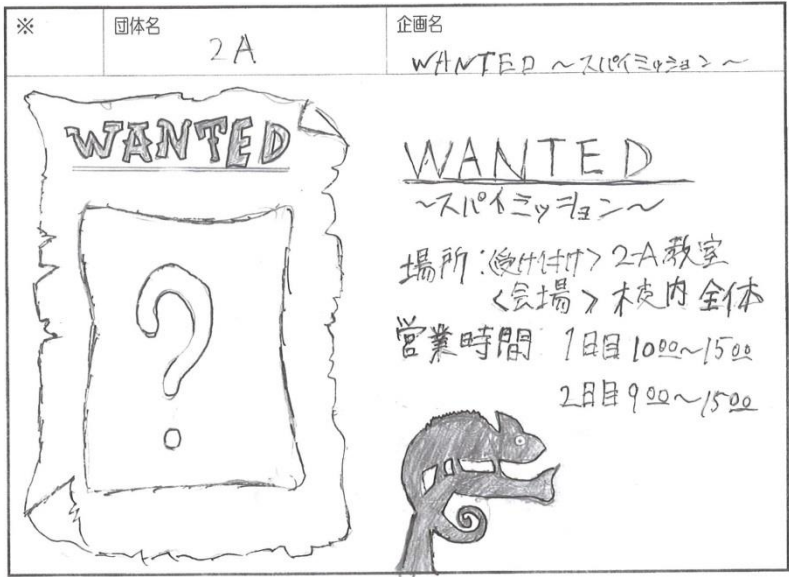 ※
団体名
2A
企画名
WANTED ～スパイミッション～
WANTED
?
WANTED
～スパイミッション～
場所:〈受け付け〉2-A教室
〈会場〉校内全体
営業時間 1日目 10:00～15:00
2日目 9:00～15:00